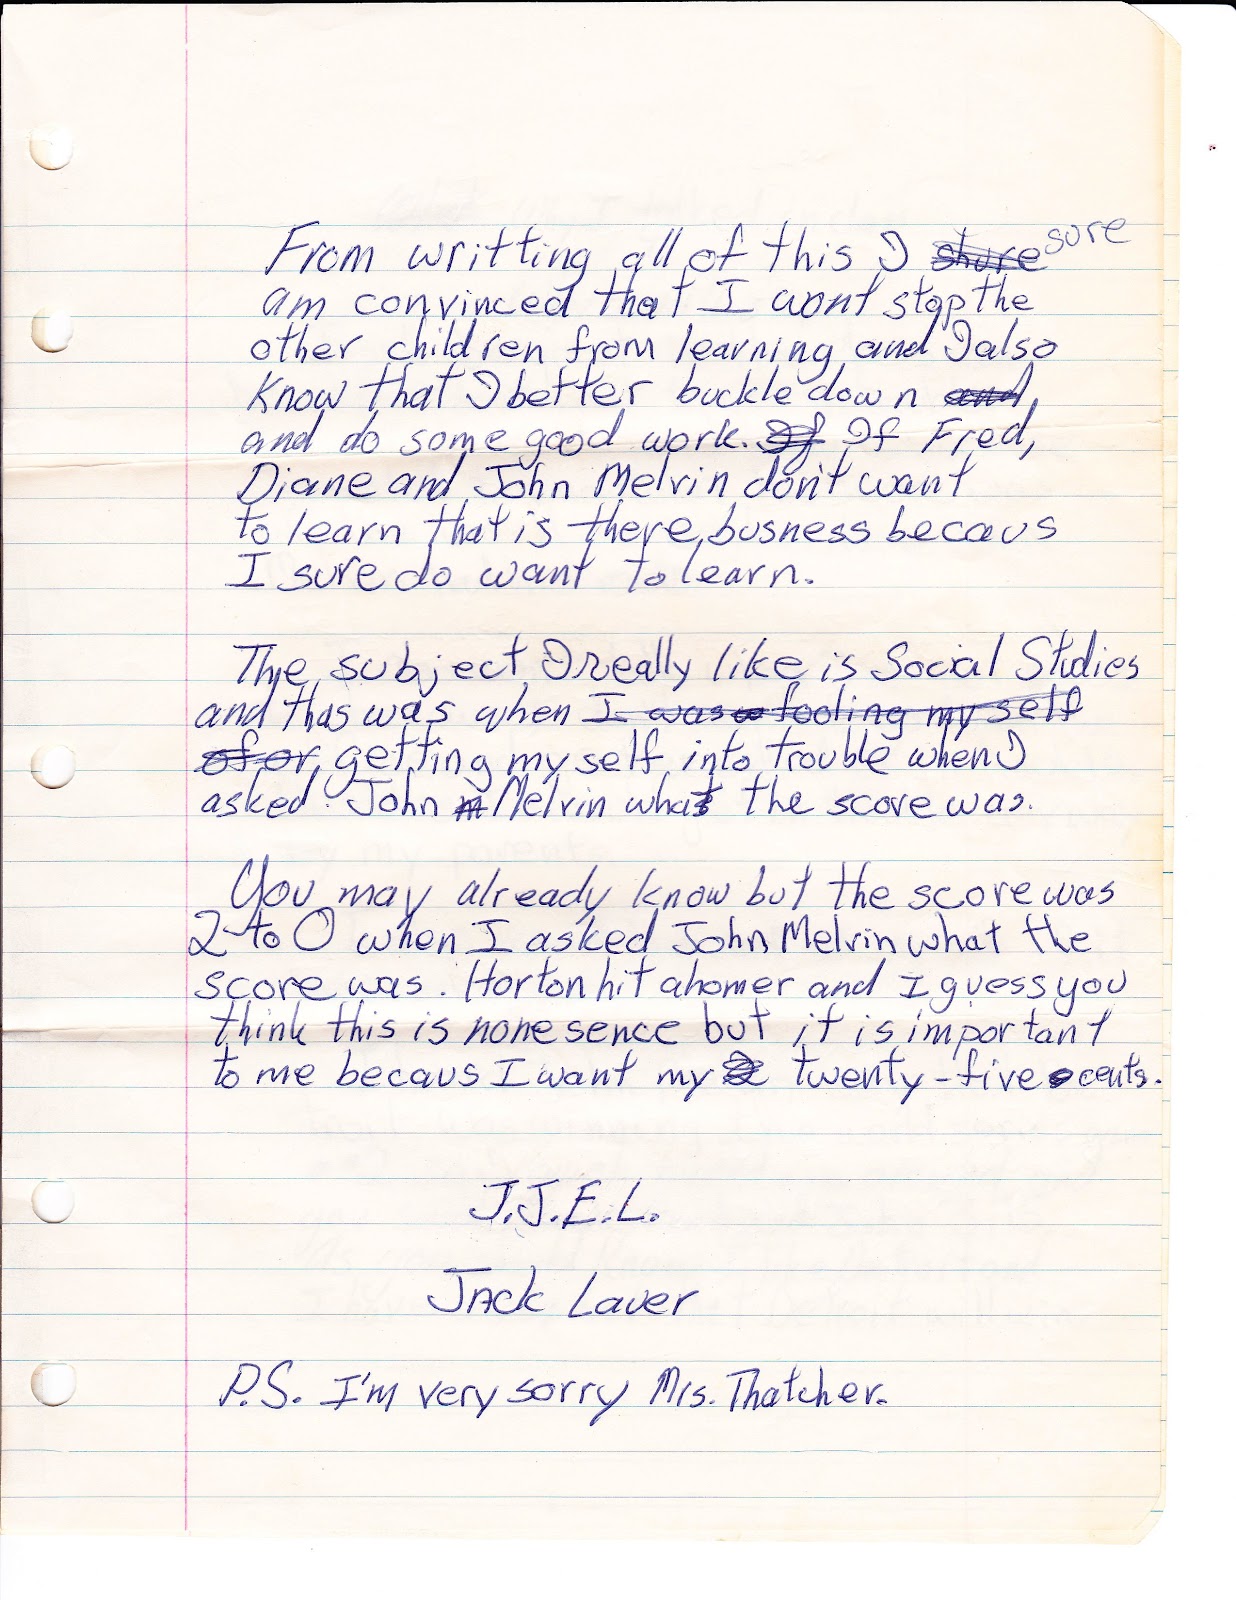 From writting all of this I shure sure
am convinced that I wont stop the
other children from learning and I also
know that I better buckle down and
and do some good work. If If Fred,
Diane and John Melvin don't want
to learn that is there busness becaus
I sure do want to learn.
The subject I really like is Social Studies
and thas was when I was fooling my self
of or getting my self into trouble when I
asked John m Melvin what the score was.
You may already know but the score was
2 to 0 when I asked John Melvin what the
score was. Horton hit a homer and I guess you
think this is nonesence but it is important
to me becaus I want my twenty-five cents.
J.J.E.L.
Jack Lauer
P.S. I'm very sorry Mrs. Thatcher.